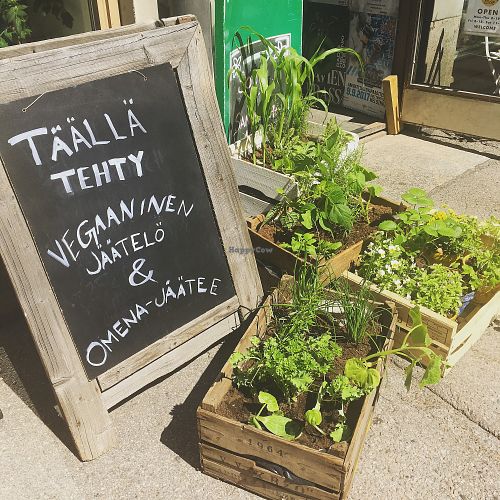 TÄÄLLÄ
TEHTY
VEGAANINEN
JÄÄTELÖ
&
OMENA-JÄÄTEE
HappyCow
1964
OPEN
WELCOME
9.9.2017